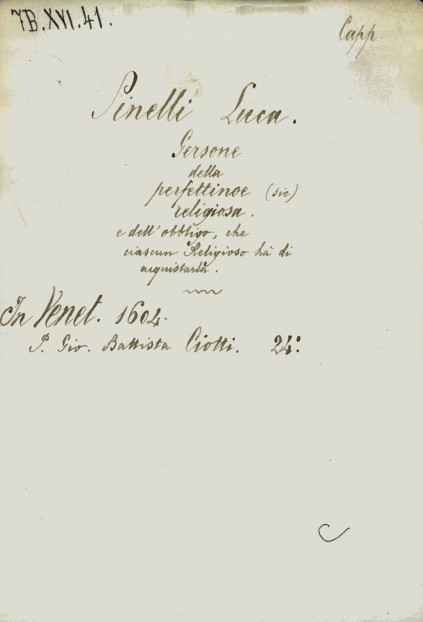 7B.XVI.41.
Capp.
Pinelli Luca.
Gersone
della
perfettinoe (sic)
religiosa.
e dell'obbligo, che
ciascun Religioso hà di
acquistarla.
In Venet. 1604.
P. Gio. Battista Ciotti. 24°.